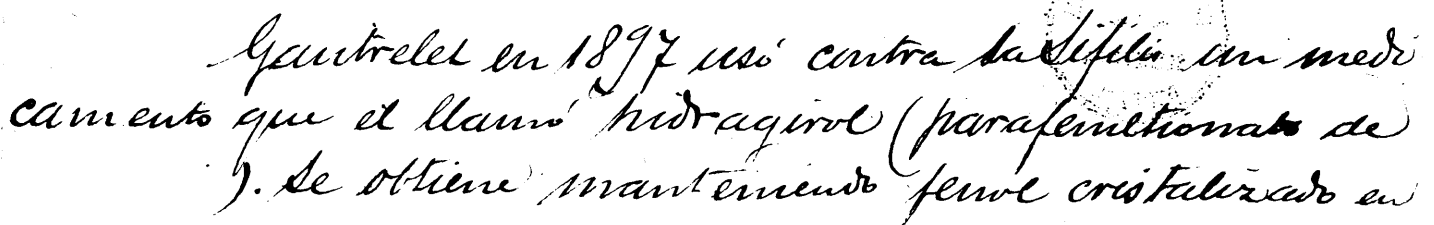 Gautrelet en 1897 usó contra la Sifilis un medi
camento que el llamó hidragirol (parafeniltionato de
). Se obtiene manteniendo fenol cristalizado en